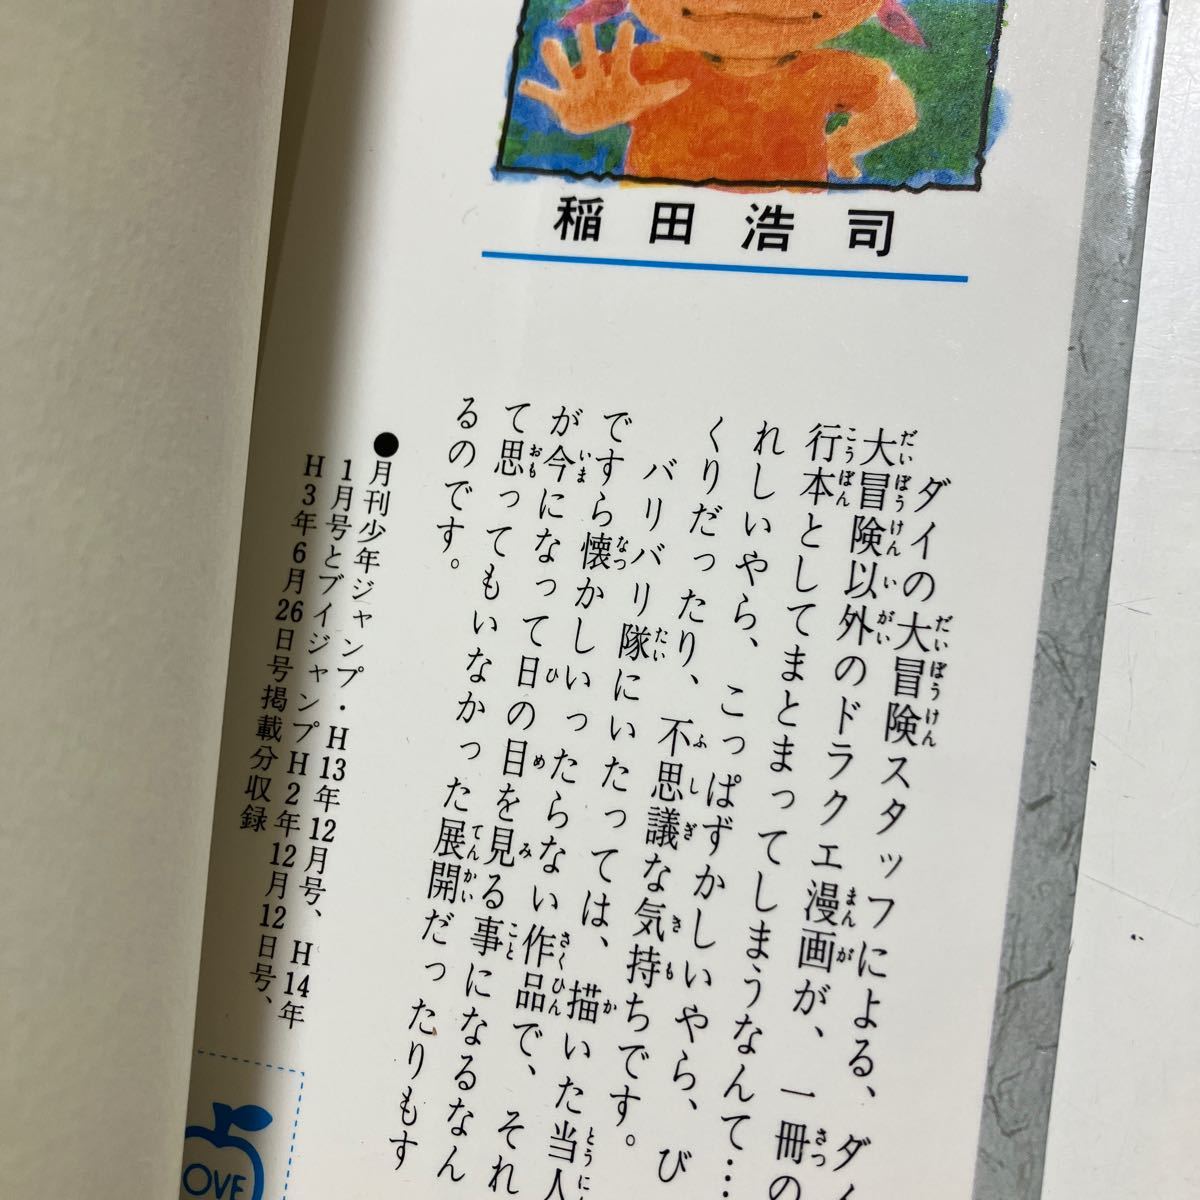 稲田浩司
ダイの大冒険スタッフによる、ダイ
大冒険以外のドラクエ漫画が、一冊の
行本としてまとまってしまうなんて…
れしいやら、こっぱずかしいやら、び
くりだったり、不思議な気持ちです。
バリバリ隊にいたっては、描いた当人
ですら懐かしいったらない作品で、それ
が今になって日の目を見る事になるなん
て思ってもいなかった展開だったりもす
るのです。
●月刊少年ジャンプ・H13年12月号、H14年
1月号とブイジャンプH2年12月12日号、
H3年6月26日号掲載分収録
OVE